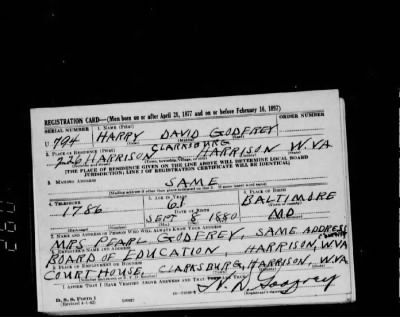 REGISTRATION CARD—(Men born on or after April 28, 1877 and on or before February 16, 1897)
SERIAL NUMBER 1. NAME (Print) ORDER NUMBER
U. 794 HARRY DAVID GODFREY
2. PLACE OF RESIDENCE (Print) CLARKSBURG
226 HARRISON HARRISON W.VA
[THE PLACE OF RESIDENCE GIVEN ON THE LINE ABOVE WILL DETERMINE LOCAL BOARD
JURISDICTION; LINE 2 OF REGISTRATION CERTIFICATE WILL BE IDENTICAL]
3. MAILING ADDRESS
SAME
4. TELEPHONE 5. AGE IN YEARS 6. PLACE OF BIRTH
61 BALTIMORE
1786 DATE OF BIRTH
SEPT 8 1880 MD
7. NAME AND ADDRESS OF PERSON WHO WILL ALWAYS KNOW YOUR ADDRESS
MRS PEARL GODFREY, SAME ADDRESS
8. EMPLOYER'S NAME AND ADDRESS
BOARD OF EDUCATION, HARRISON, W.VA
9. PLACE OF EMPLOYMENT OR BUSINESS
COURT HOUSE, CLARKSBURG, HARRISON, W.VA
I AFFIRM THAT I HAVE VERIFIED ABOVE ANSWERS AND THAT THEY ARE TRUE.
D. S. S. Form 1
(Revised 4-1-42) H. D. Godfrey